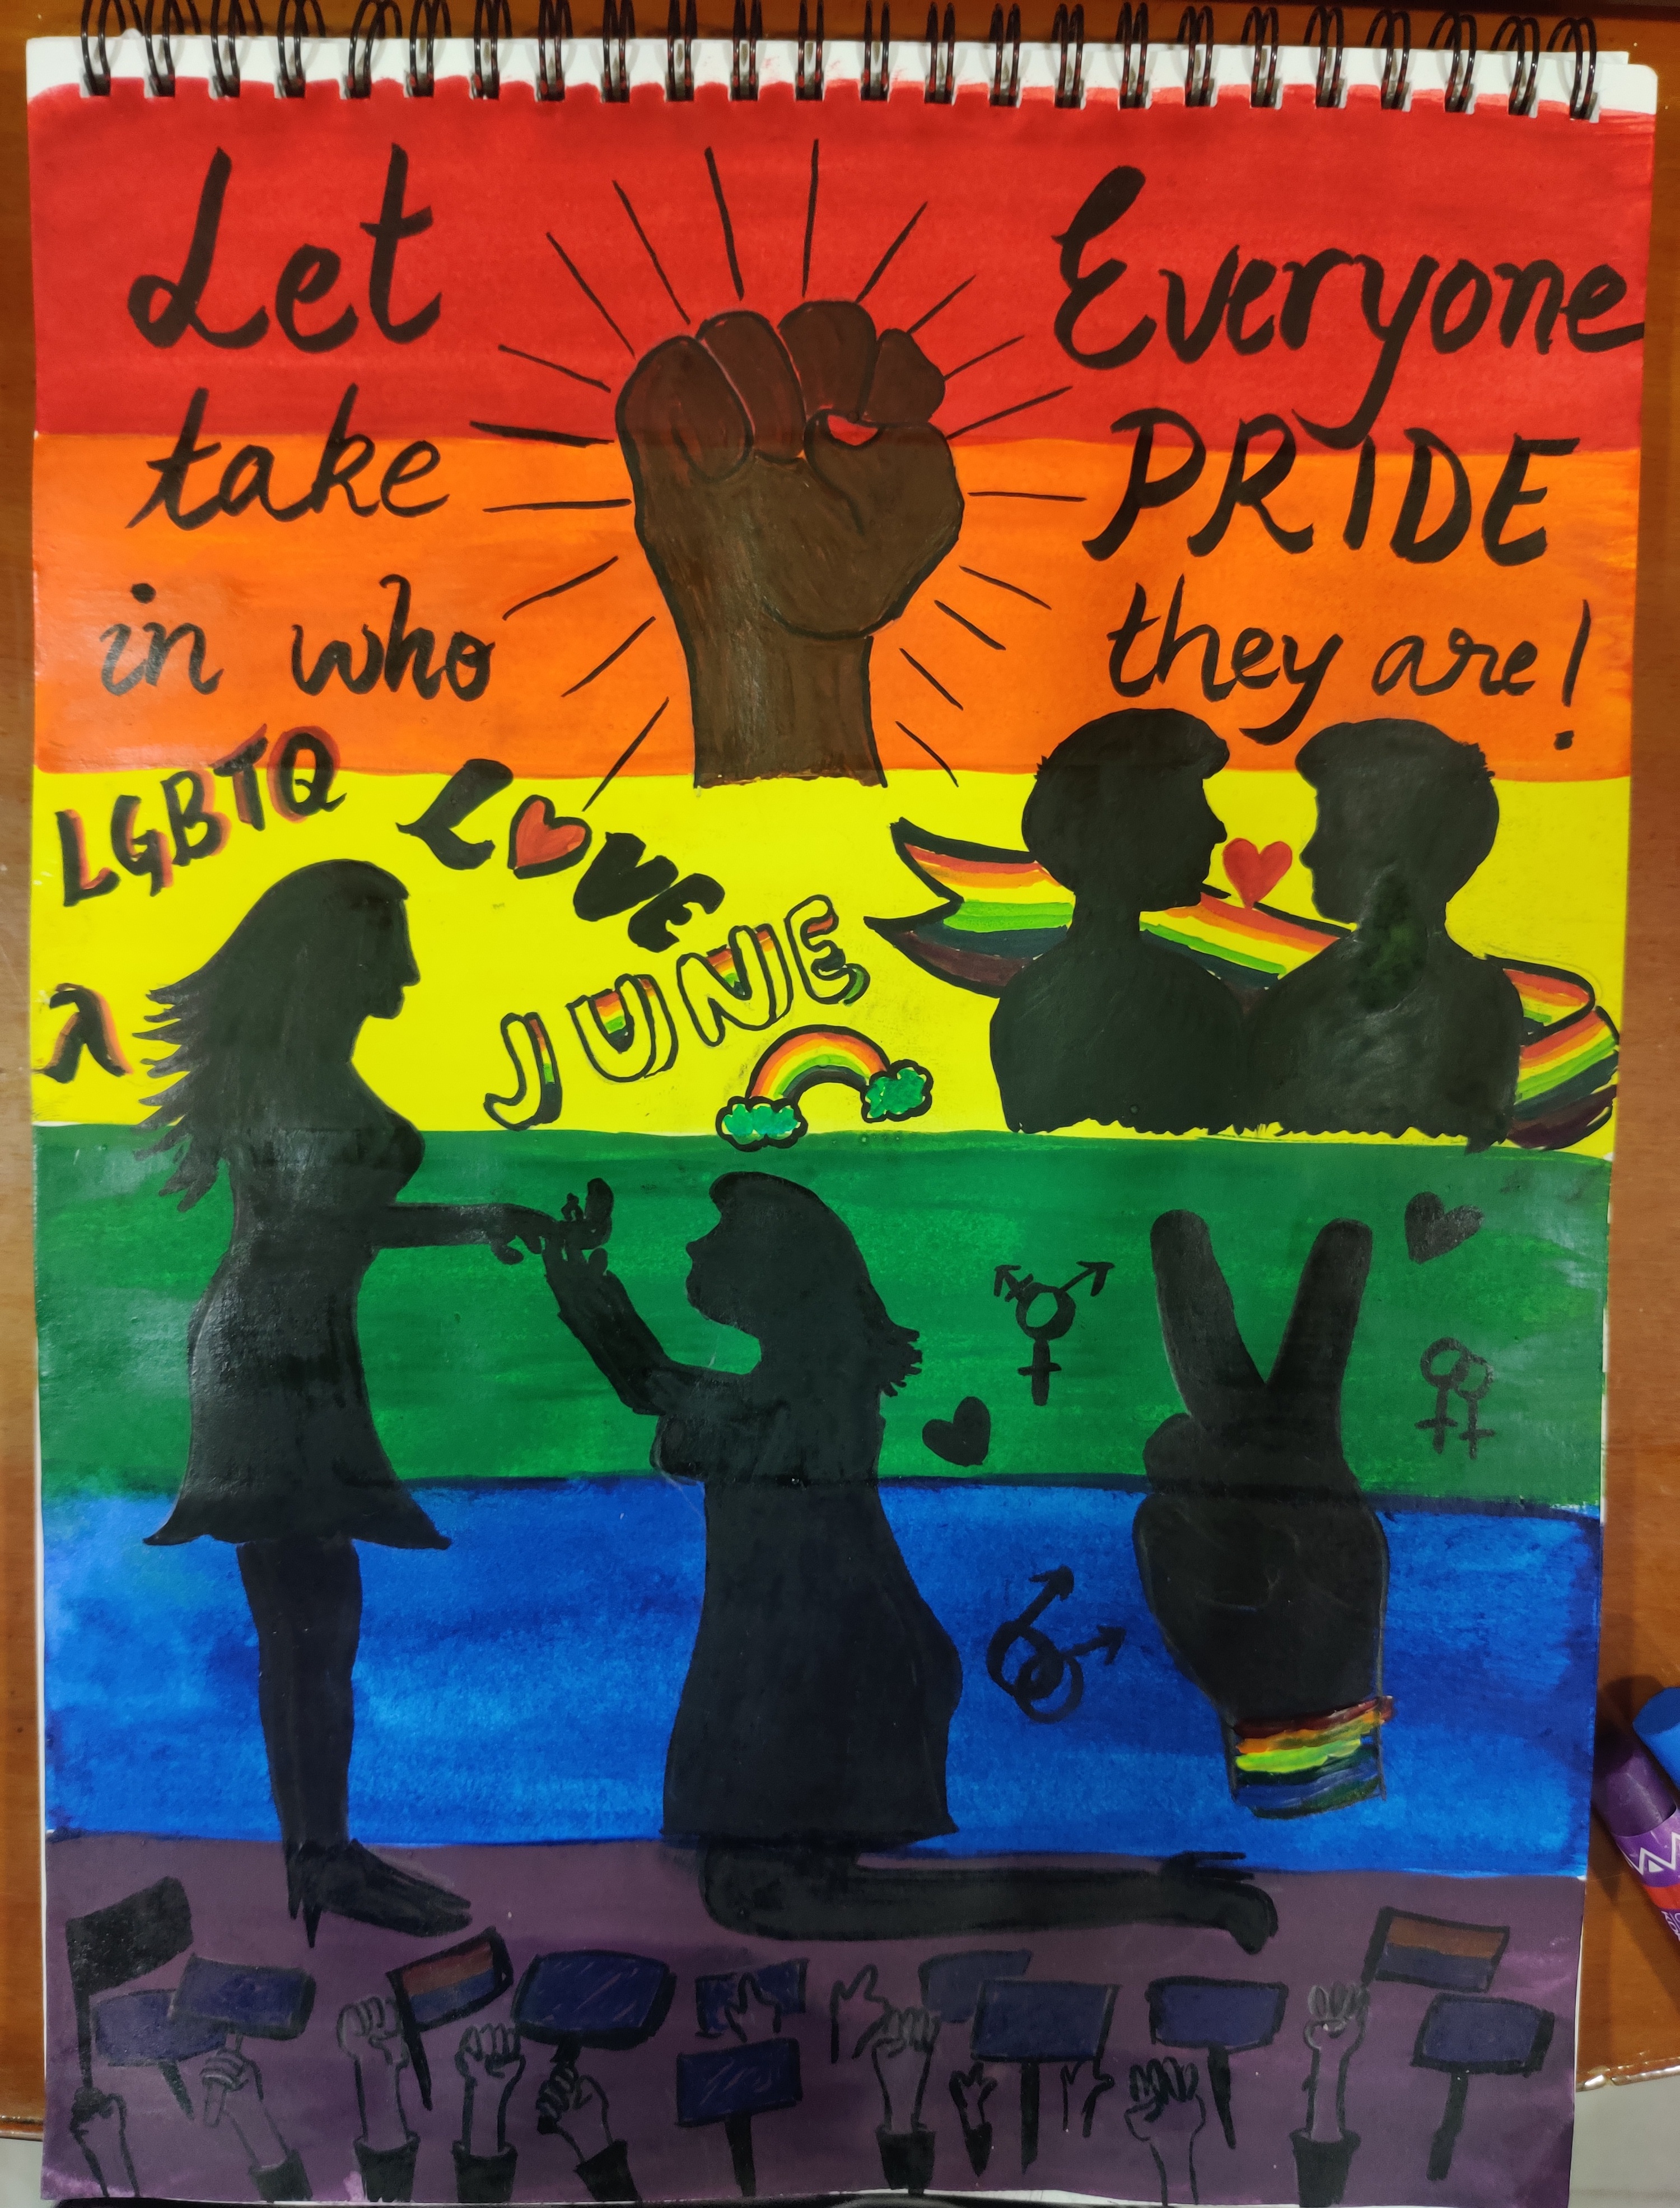 Let Everyone
take PRIDE
in who they are!
LGBTQ LOVE
JUNE
λ